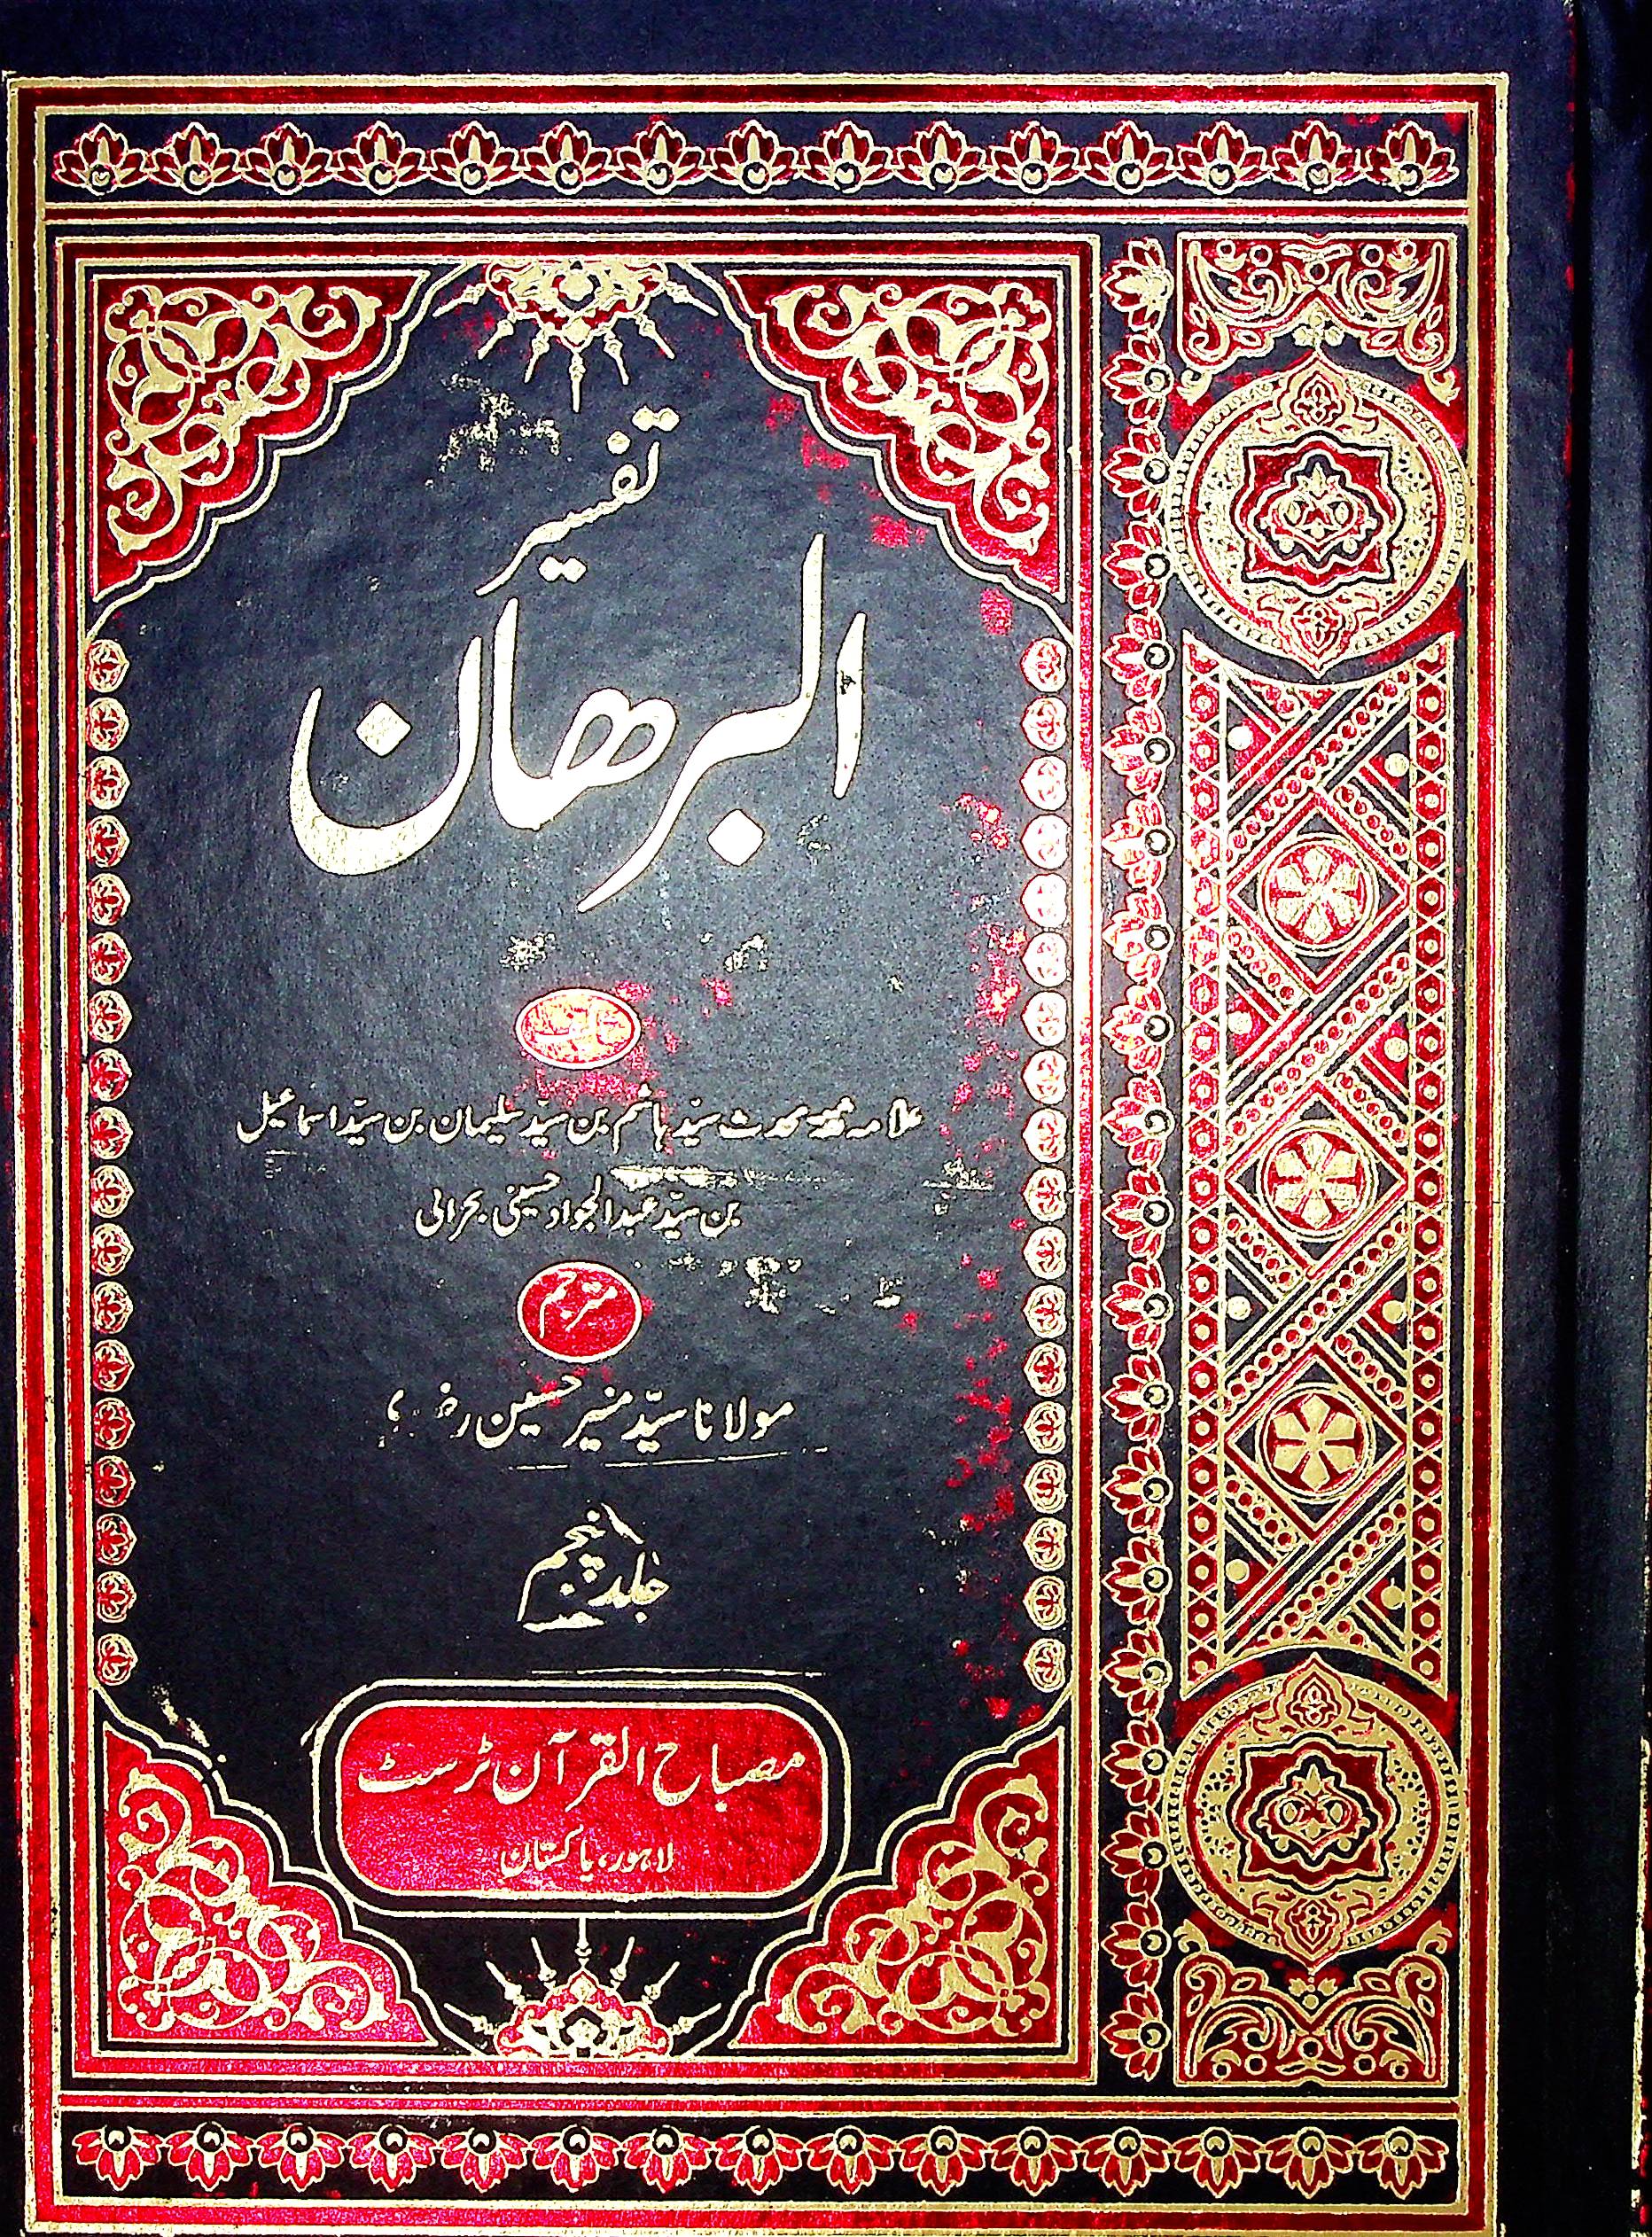 تفسیر
البرھان
تالیف
علامہ محدث سیّد ہاشم بن سیّد سلیمان بن سیّد اسماعیل
بن سیّد عبدالجواد حسینی بحرانی
مترجم
مولانا سیّد منیر حسین
جلد پنجم
مصباح القرآن ٹرسٹ
لاہور، پاکستان